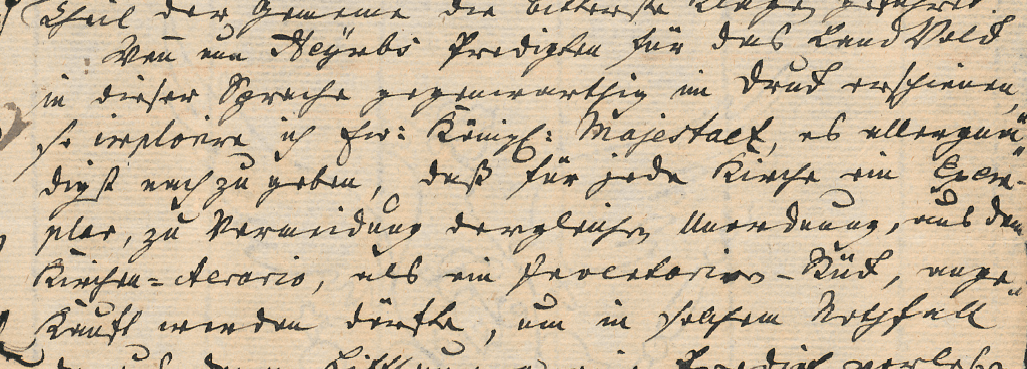 Theil der Gemeine die bitterste Klage geführet.
Wenn nun Heymbs Predigten für das Land Volck
in dieser Sprache gegenwärthig im Druck erschienen,
so imploire ich Ew: Königl: Majestaet, es allergnä-
digst nach zu geben, daß für jede Kirche ein Exem-
plar, zu Vermeidung dergleichen Unordnung, aus dem
Kirchen=Aerario, als ein Inventarien-Stück, ange-
kauft werden dörfte, um in solchem Nothfall
Predigt verlesen